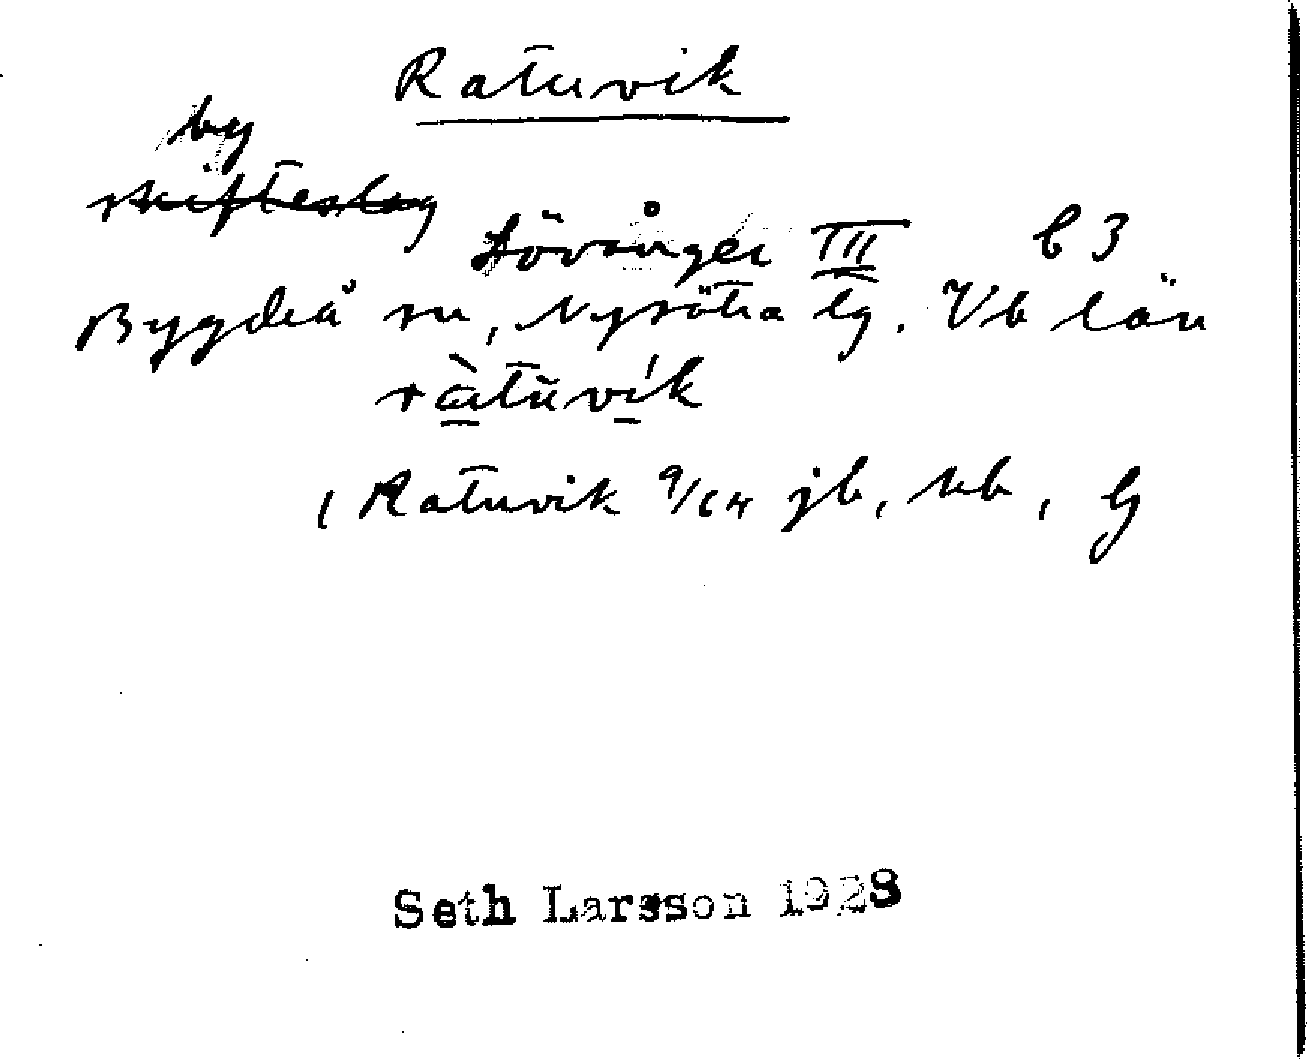 Ratuvik
by
skifteslag
Lövånger III b 3
Bygdeå sn, Nysätra lg. Vb län
ràtŭvík
1 Ratuvik 9/64 jb, kb, lg
Seth Larsson 1928